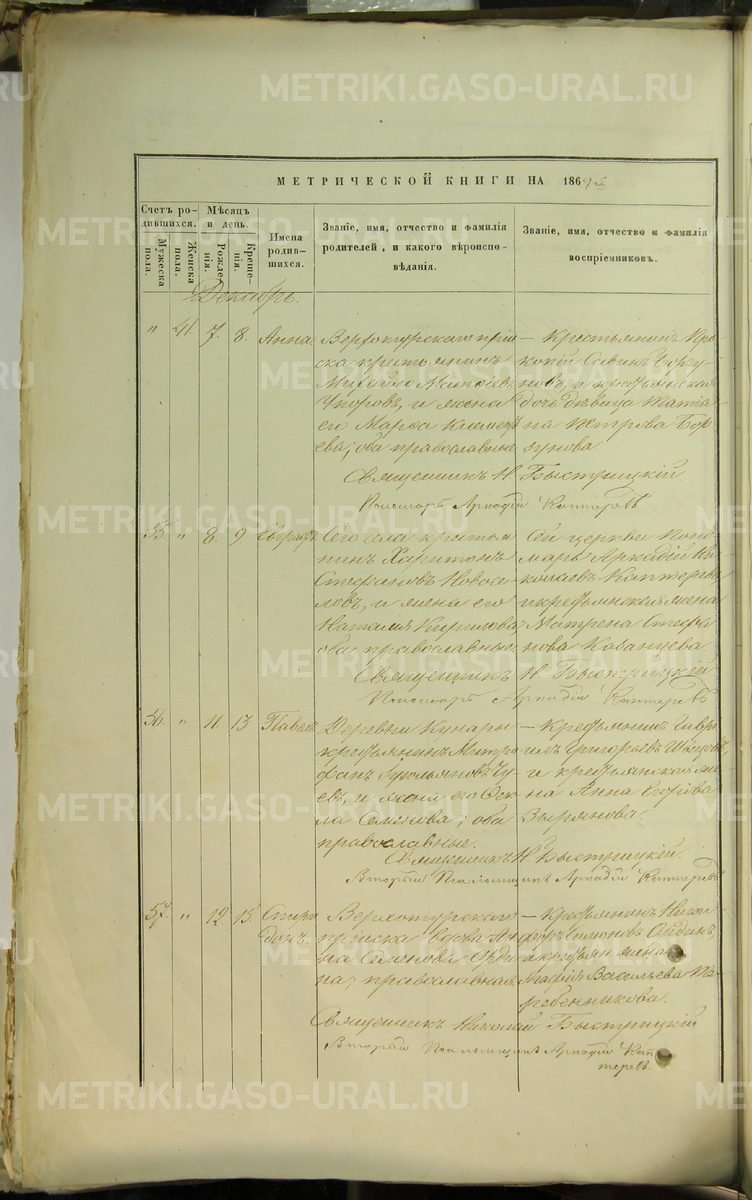 МЕТРИЧЕСКОЙ КНИГИ НА 1869й
Счетъ родившихся.
Мужеска пола.
Женска пола.
Мѣсяцъ и день.
Рожденія.
Крещенія.
Имена родившихся.
Званіе, имя, отчество и фамилія
родителей, и какого вѣроиспо-
вѣданія.
Званіе, имя, отчество и фамилія
воспріемниковъ.
Декабрь.
" 41. 7. 8. Анна
Верхотурскаго прiи
ска крестьянинъ
Михайло Матвѣевъ
Упоровъ, и жена
его Марья Климен
ева; оба православные
— Крестьянинъ Про
копій Савинъ
новъ, и крестьянская
дочь дѣвица Татья
на Петрова Бор
зунова.
Священникъ Н Быстрицкій
Пономарь Аркадій Каптеревъ
55. " 8. 9 Евграфъ
Сего села крестья
нинъ Харитонъ
Стефановъ Новосе
ловъ, и жена его
Наталія Кирилова;
оба православные
Сей церкви Поно
марь Аркадій Ни
колаевъ Каптеревъ
и крестьянская жена
Матрена Спири
нова Кабанцева
Священникъ Н Быстрицкій
Пономарь Аркадій Каптеревъ
56. " 11. 13. Павелъ
Деревни Кунары
крестьянинъ Митро
фанъ
евъ, и жена его Оек
ла Семенова; оба
православные.
— Крестьянинъ Гаврі
илъ Григорьевъ
и крестьянская же
на Анна
Зырянова.
Священникъ Н Быстрицкій.
Вторый Псаломщикъ Аркадій Каптеревъ
57. " 12. 15. Спири
донъ.
Верхотурскаго
пріиска вдова Ан
на Семенова
на; православная
— Крестьянинъ Ники
форъ Симоновъ
и крестьян жена
Марія Васильева
ребенникова.
Священникъ Николай Быстрицкій
Вторый Псаломщикъ Аркадій Кап
теревъ.
METRIKI.GASO-URAL.RU